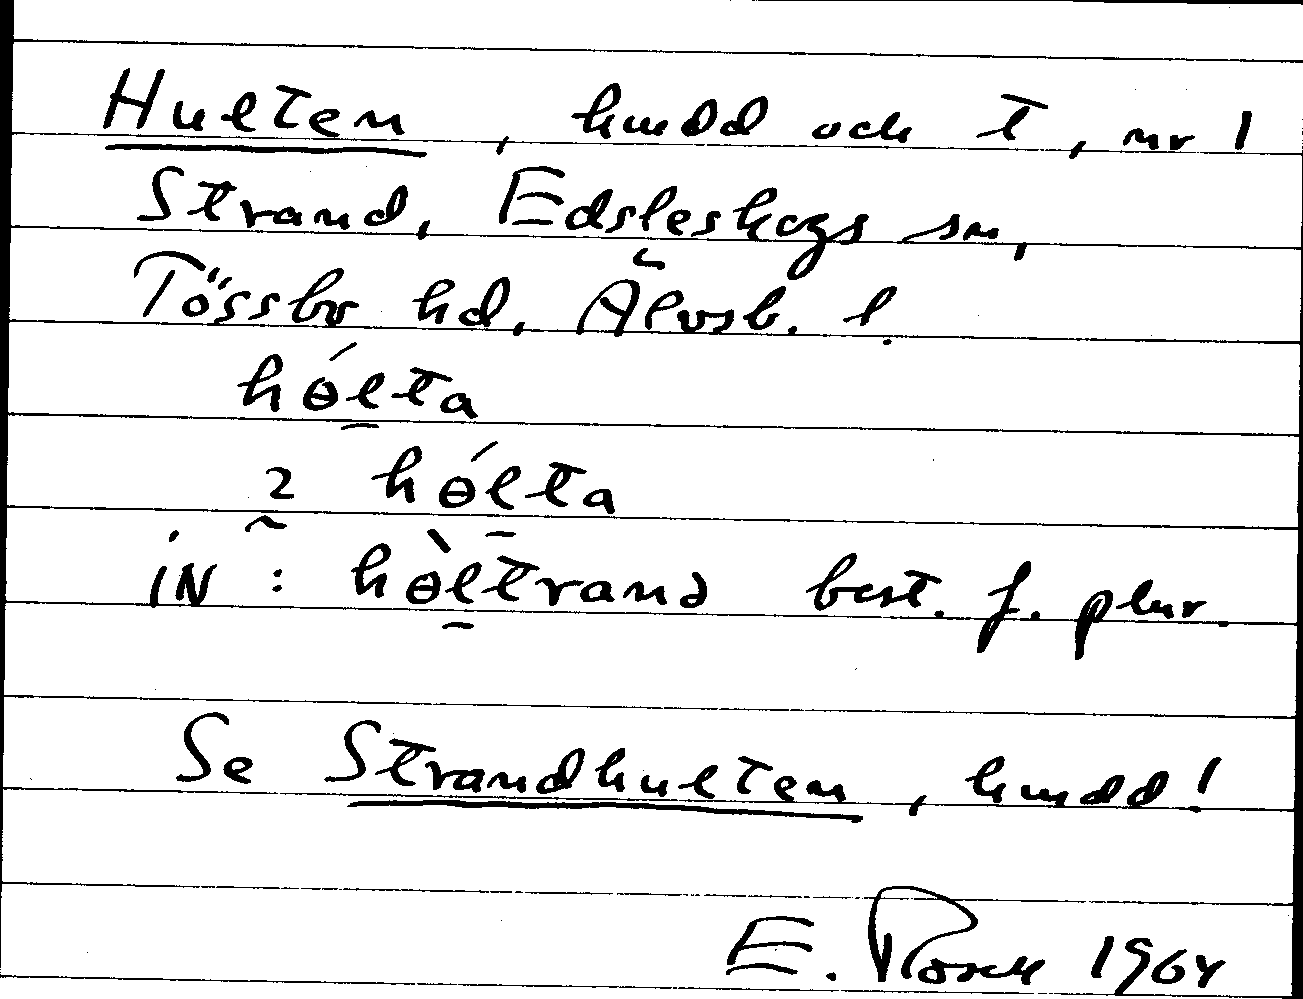 Hulten, hmdd och t, nr 1
Strand, Edsleskogs sn,
Tössbo hd. Älvsb. l.
hɵ́lta
2 hɵ́lta
iN : hɵ̀ltrana best. f. plur.
Se Strandhulten, hmdd!
E. Rosell 1964